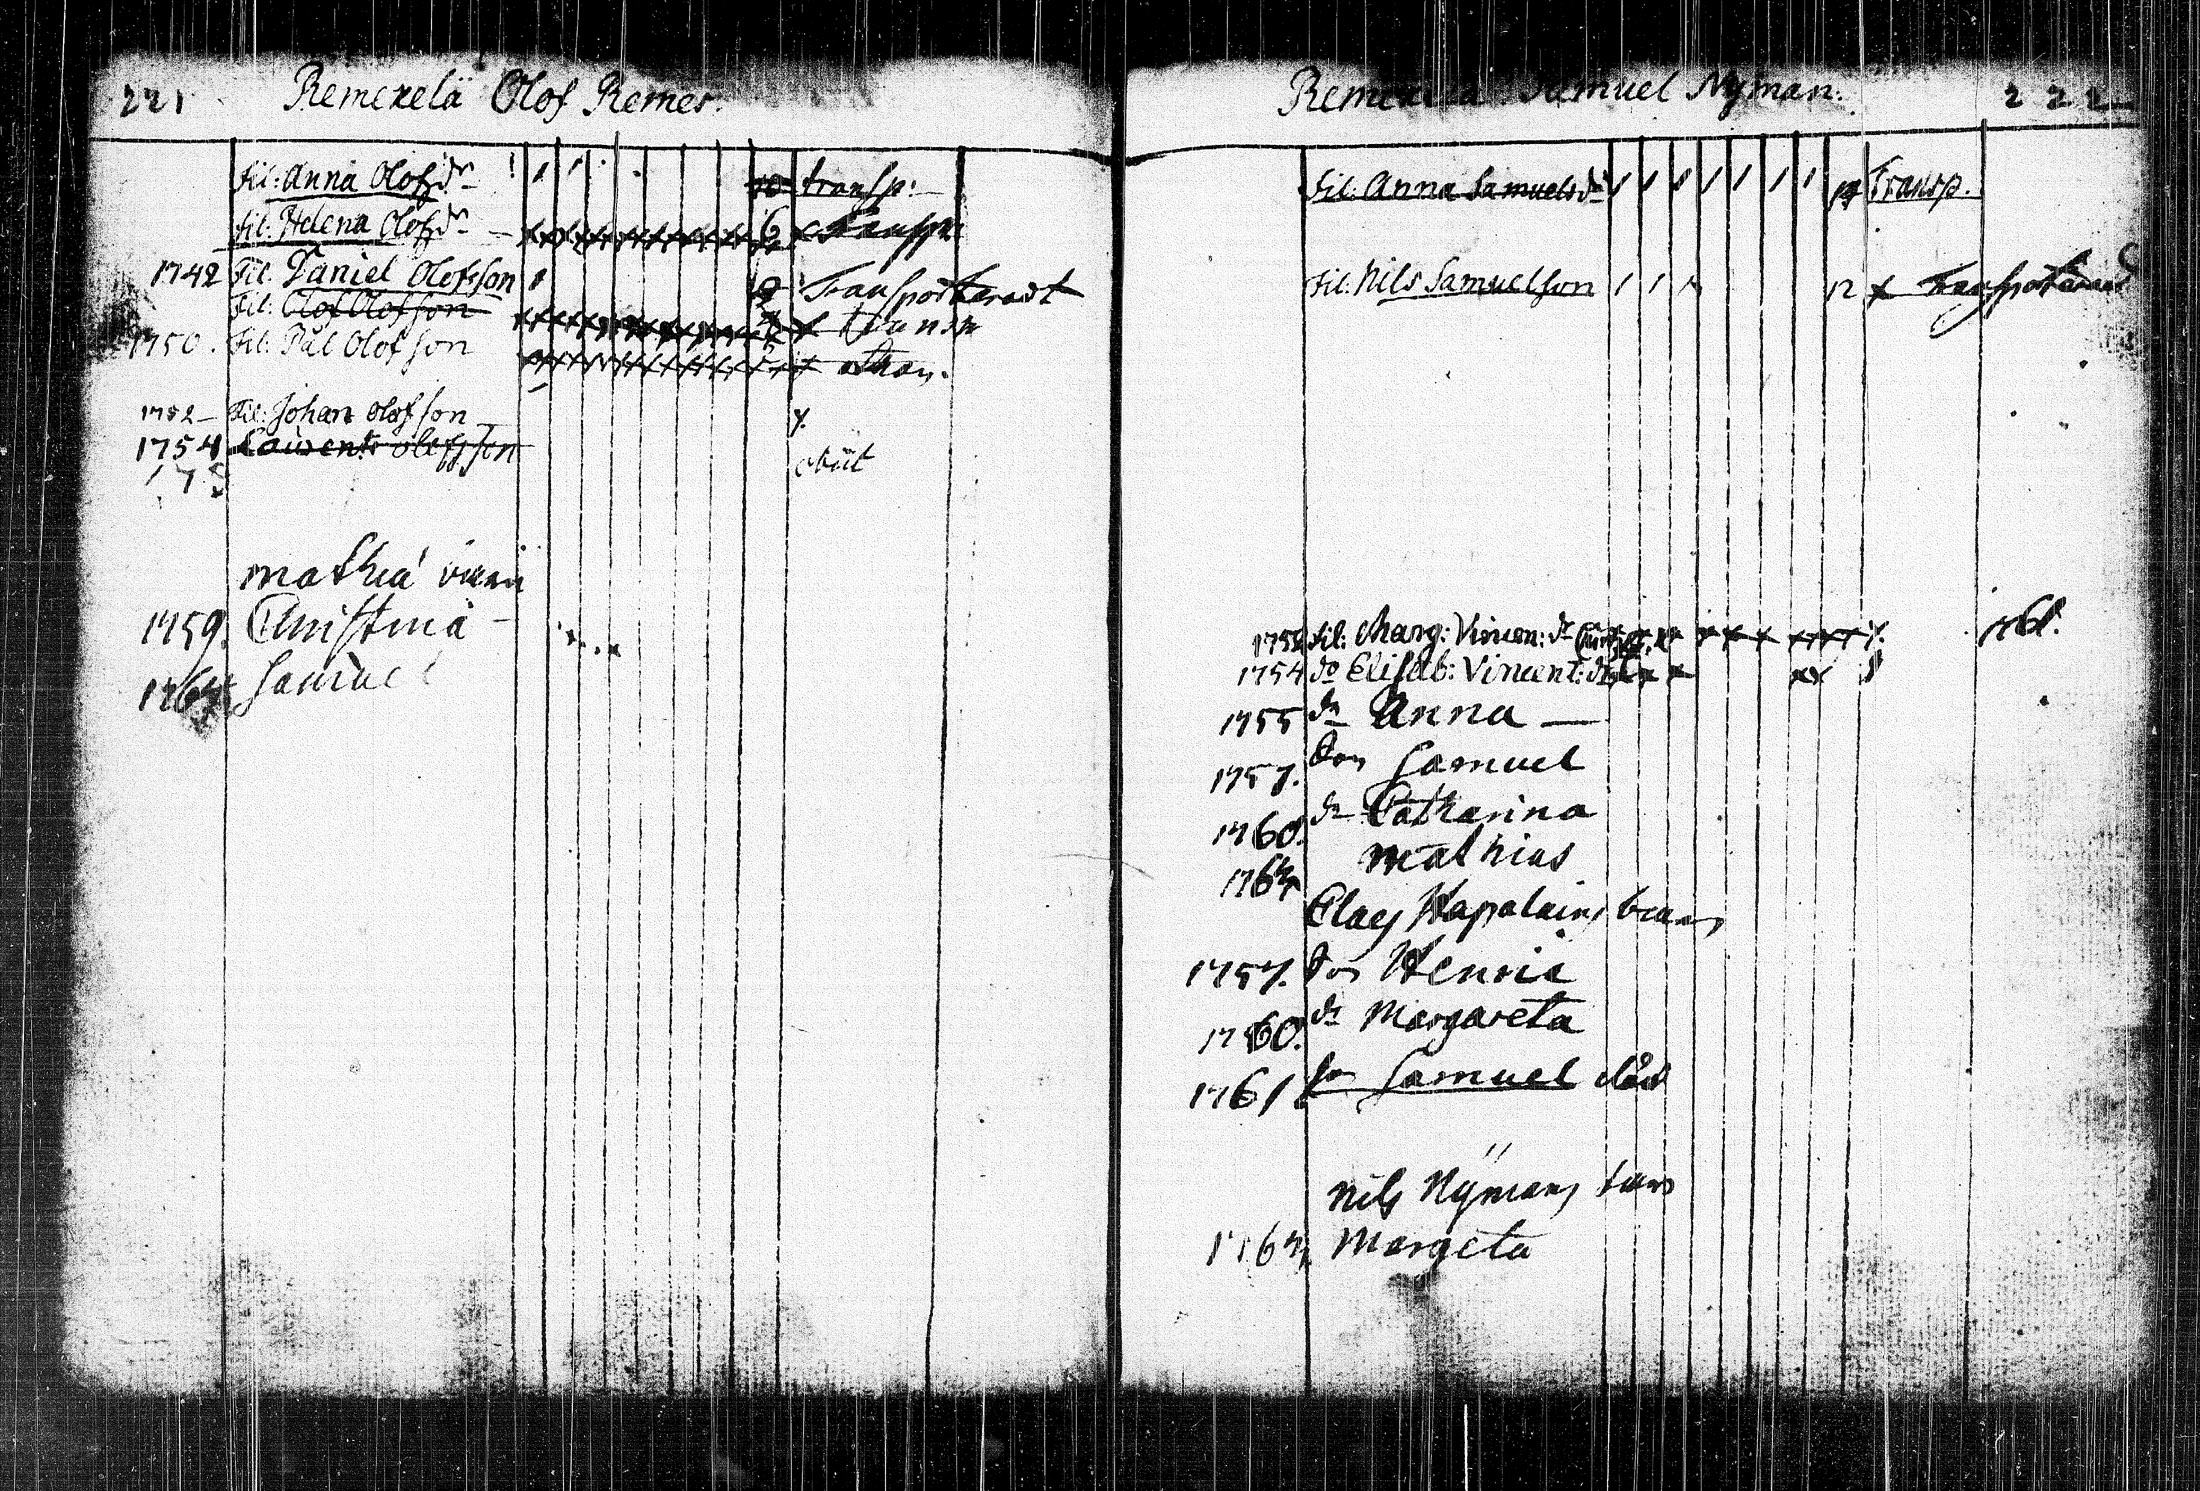 221 Remexelä Olof Remes.
Fil: Anna Olofsdr 10 transp:
Fil: Helena Olofsdr 6 x Transp
1742 Fil. Daniel Olofsson Transporteradt
Fil: Olof Olofsson x transp
1750. Fil: Pål Olofsson x
1752 – Fil: Johan Olofsson x.
1754 Laurents Olofsson obiit
175
Mathia barn
1759. Christina –
Samuel
Samuel Nyman. 222
Fil: Anna Samuelsdr Transp.
Fil: Nils Samuelson 12 x Transporterad
Fil: Marg: Vincen: dr 1761.
1754 do Elisab: Vincent: dr
1755 dr Anna —
1757. Son Samuel
1760. dr Catharina
Mathias
Claes Hapalains barn
1757. Son Henric
1760. dr Margareta
1761 son Samuel död
Nils Nymans barn
Margeta